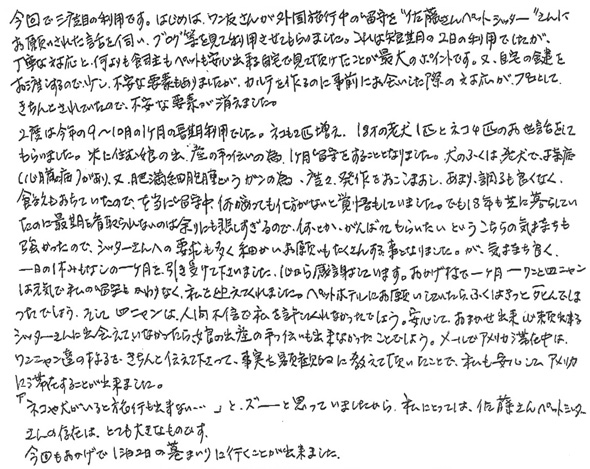 今回で三度目の利用です。はじめは、ワン友さんが外国旅行中の留守を"佐藤さんペットシッター"さんに
お願いされた話を伺い、ブログ等を見て利用させてもらいました。これは短期の2日の利用でしたが、
丁寧な対応と、何よりも飼主もペットも安心出来る自宅で見て頂けたことが最大のポイントです。又、自宅の鍵を
お渡しするので少し、不安な要素もありましたが、カルテを作るのに事前にお会いした際の対応が、プロとして
きちんとされていたので、不安な要素が消えました。
2度は今年の9〜10月の1ヶ月の長期利用でした。ネコも2匹増え、18才の老犬1匹とネコ4匹のお世話をして
もらいました。米に住む娘の出産の手伝いの為、1ヶ月留守をすることとなりました。犬のふくは老犬で、持病
(心臓病)があり、又、肥満細胞腫というガンの為、度々、発作をおこしまし、あまり、調子も良くなく、
食欲もおちていたので、本当に留守中何が起っても仕方がないと覚悟もしていました。でも18年も共に暮らしてい
たのに最期を看取られないのは余りにも悲しすぎるので、何とか、がんばってもらいたいというこちらの気持ちも
強かったので、シッターさんへの要求も多く細かいお願いもたくさんする事となりました。が、気持ち良く、
一日の休みもなしの一ヶ月を、引き受けて下さいました。心から感謝しています。おかげさまで一ヶ月一ワンと四ニャン
は元気で私の留守もかわりなく、私を迎えてくれました。ペットホテルにお願いしていたら、ふくはきっと死んでしま
ったでしょうし、四ニャンは、人間不信で私を許してくれなかったでしょう。安心して、おまかせ出来、心から信頼出来る
シッターさんに出会えていなかったら、娘の出産の手伝いも出来なかったことでしょう。メールでアメリカ滞在中は、
ワンニャン達の様子を、きちんと伝えて下さって、事実を客観的に教えて頂いたことで、私も安心してアメリカ
に滞在することが出来ました。
「ネコや犬がいると旅行も出来ない…」と、ズーーと思っていましたから、私にとっては、佐藤さんペットシッター
さんの存在は、とても大きなものです。
今回もおかげで1泊2日の墓まいりに行くことが出来ました。